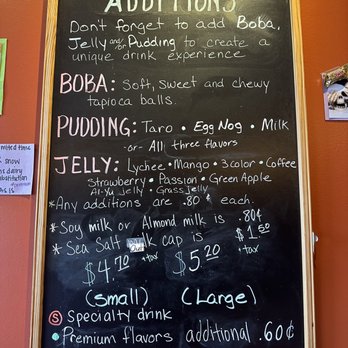 ADDITIONS
Don't forget to add Boba,
Jelly and/or Pudding to create a
unique drink experience
BOBA: Soft, sweet and chewy
tapioca balls.
PUDDING: Taro • Egg Nog • Milk
-or- All three flavors
JELLY: Lychee • Mango • 3 color • Coffee
Strawberry • Passion • Green Apple
Ai-Yu Jelly • Grass Jelly
*Any additions are .80¢ each.
*Soy milk or Almond milk is .80¢
*Sea Salt milk cap is $1.50
+tax
$4.70 +tax $5.20
(Small) (Large)
S Specialty drink
• Premium flavors additional .60¢
mited time
snow
dairy